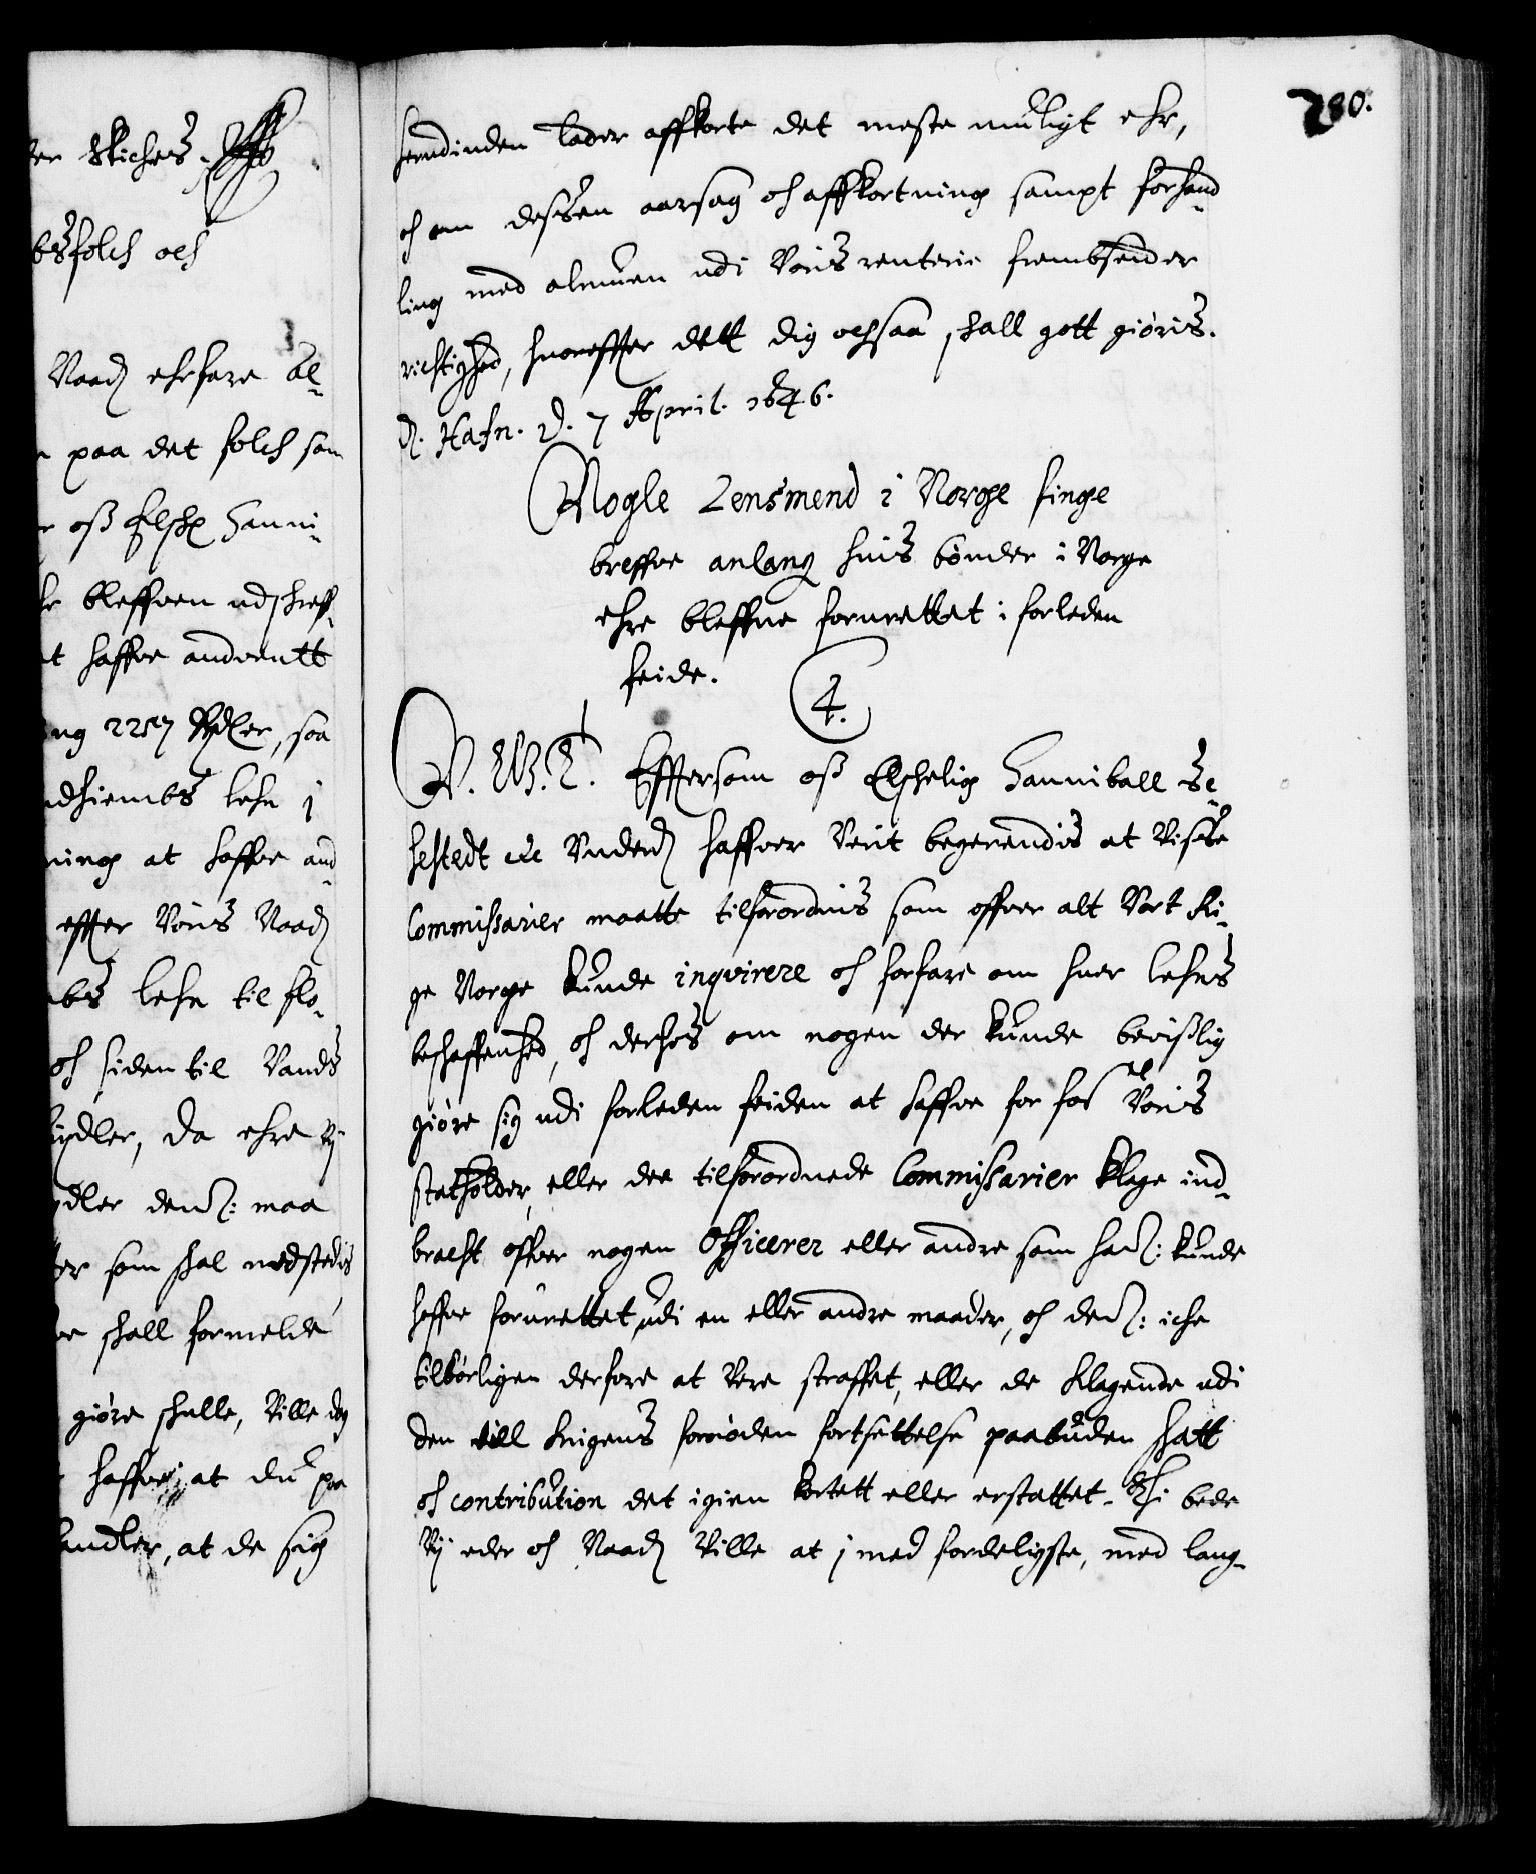 er skickes.
bsfolch och
Naad. ehrfare al-
paa det folch som
oss Elsk. Hanni-
bleffuen udschreff-
t haffue andventt
ng 2257 Rdler, saa
dhiembs lehn j
ning at haffue and-
effter Voris Naad.
bs lehn til flo-
och siden til Vands
ydler, da ehre Vj
dler dem: maa
er som skal nedstedis
e skall formelde
giøre skulle, Ville dog
haffue, at du paa
andler, at de sig
280.
hemdinden lader affkorte det meste muligt ehr,
och om dessen aarsag och affkortning sampt forhand-
ling med almuen udi Voris renterie frembsender
richtighed, huoreffter dett dig ochsaa skall gott giøris.
D. Hafn. d. 7 April. 1646.
Nogle Lensmend i Norge finge
breffue anlang huis bønder i Norge
ehre bleffne forurettet i forleden
feide.
4.
V. G. T. Efftersom oss Elskelig Hanniball Se-
hestedt etc Underd. haffuer Verit begerendis at Visse
Commissarier maatte tilforordnis som offuer alt Vort Ri-
ge Norge kunde inqvirere och forfare om huer lehns
beschaffenhed, och derhos om nogen der kunde bevisslig
giøre sig udi forleden feiden at haffue for hos Voris
statholder, eller dee tilforordnede Commissarier klage ind-
bracht offuer nogen Officerer eller andre som ham: kunde
haffue forurettet udi en eller andre maader, och dem: iche
tilbørligen derfore at Vere straffet, eller de klagende udi
den till krigens fornøden fortsettelse paabuden skatt
och contribution det igien kortett eller erstattet. Thi bede
Vj eder och Naad. Ville at j med forderligste, med lang-